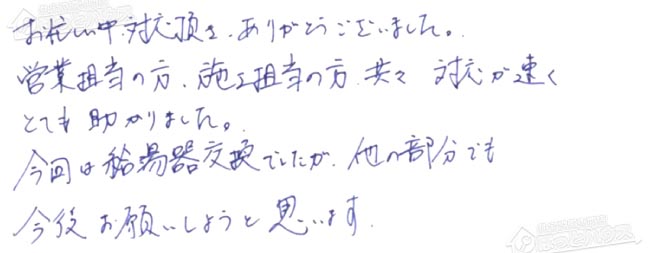 お忙しい中、対応頂き、ありがとうございました。
営業担当の方、施工担当の方、共々 対応が速く
とても 助かりました。
今回は給湯器交換でしたが、他の部分でも
今後 お願いしようと 思います。